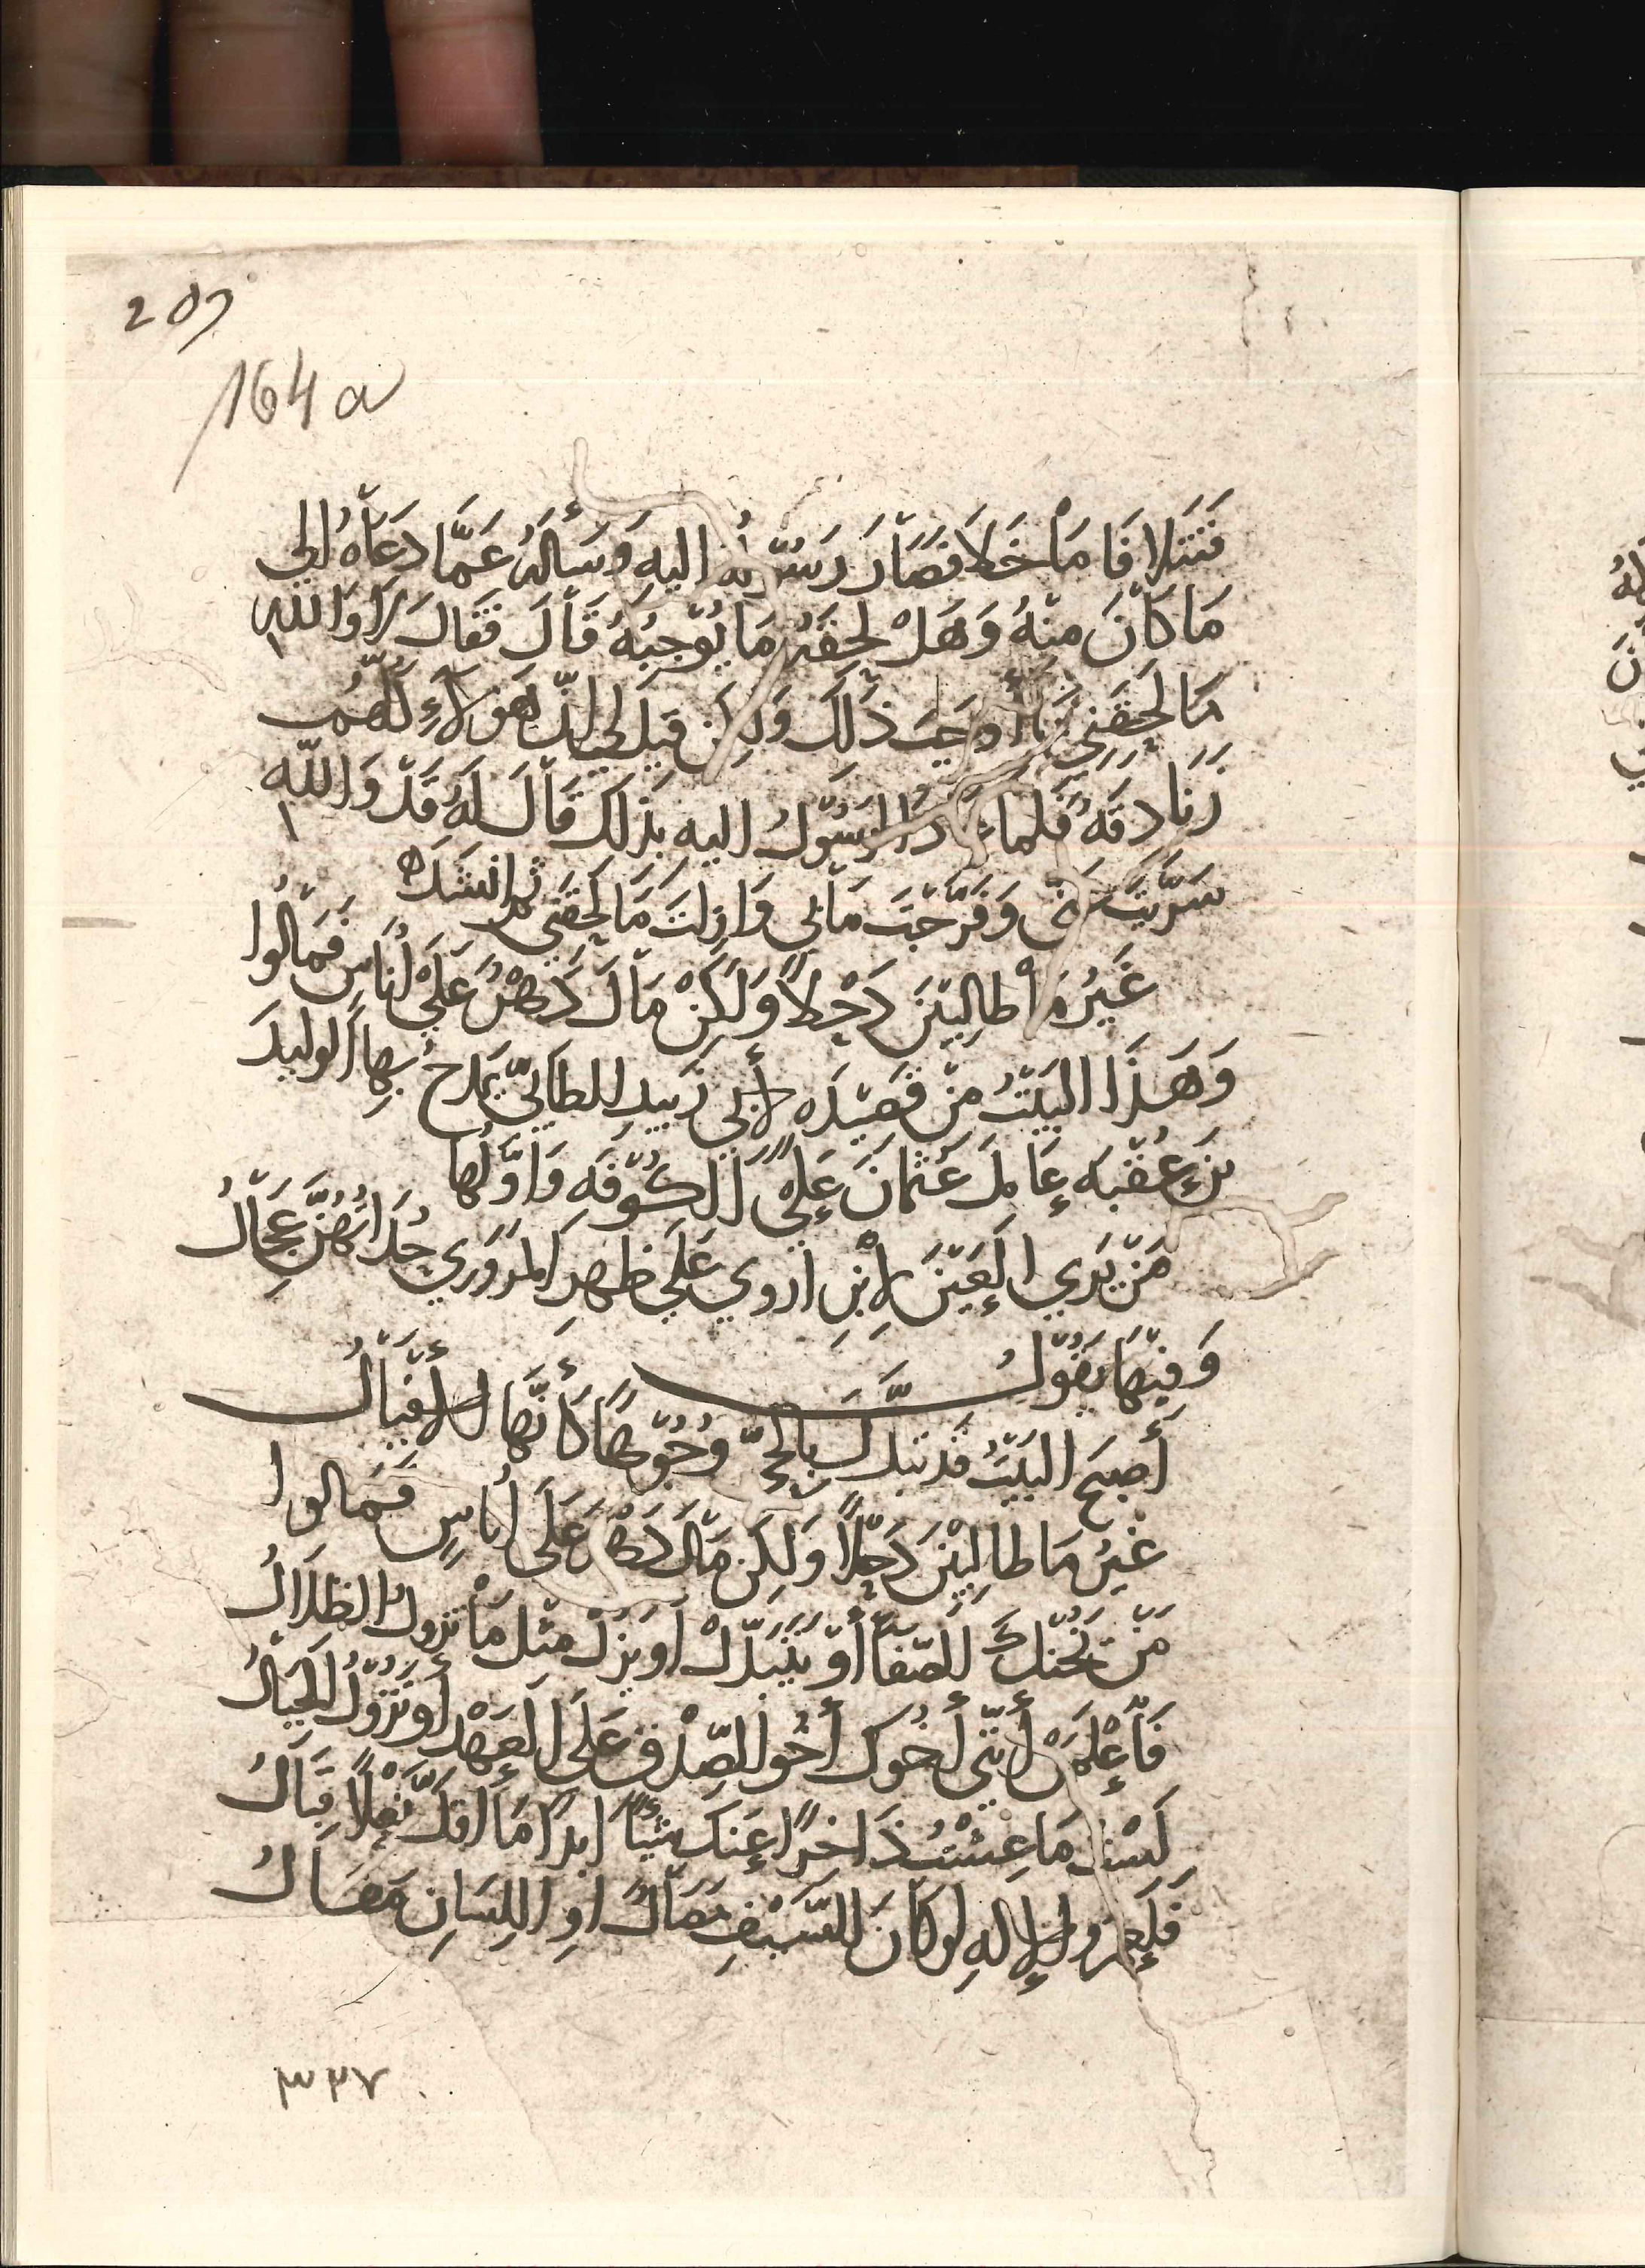 205
164 a
فَتَتَلا فَا مَا خَلَا فَصَارَ رَسُولُهُ اليهِ وَسَأَلَهُ عَمَّا دَعَاهُ إلى
مَا كَانَ مِنْهُ وَهَلْ لَحِقَهُ مَا يُوْجِبُهُ قَالَ فَقَالَ لَا وَاللهِ
مَا لَحِقَنِي مَا أَوْجَبَ ذَلِكَ وَلَكِن قِيلَ لِي إنّ هَؤلَاءِ كُلَّهُم
زَنَادِقَهُ فَلَما عَادَ الرَسُوْلُ اليهِ بِذَلِكَ قَالَ لَهُ قَدْ وَاللهِ
سَرَّيْتَ عَنّي وَفَرَّجْتَ مَا بِي وَازَلتَ مَا لَحِقَنِي ثم انشَدَهُ
غَيْرُ مَا طالِبِيْنَ ذَحْلًا وَلَكِنْ مَالَ دَهْرٌ عَلَى أُنَاسٍ فَمَالُوا
وَهَذَا البَيْتُ مِنْ قَصِيْدَه لأبي زُبَيدِ الطائيّ يَمدحُ بِها الوليدَ
بنَ عُقْبَه عَامِلَ عُثْمَانَ عَلَى الكُوْفَهِ وَاوَّلُها
مَنْ يَرَي العَيْنَ لِابْنِ اروي عَلَي ظهرِ المَرَوْرَي حُدَاتُهُنَّ عِجَالُ
وَفِيْهَا يَقُوْلُ
أَصبَحَ البَيْتُ قد تبدلَ بالحَيِّ وُجُوْهًا كَأَنَّهَا الأَقْيَالُ
غَيْرَ مَا طالِبِيْنَ ذَحْلًا وَلَكِن مَالَ دَهْرٌ عَلَى أُنَاسٍ فَمَالوا
مَنْ يَخُنْكَ الصّفَا أَوْ يَتَبَدَّلْ أو يَزُلْ مِثْلَ مَا تزولُ الظلَالُ
فَاعْلَمَنْ أَنّنِي أَخُوكَ أَخُو الصِّدْقِ عَلَى العَهْدِ أَو تَزُوْلُ الجِبَالُ
لَسْتُ مَا عِشْتُ ذَاخِرًا عَنكَ شَيْئًا ابدًا مَا اقلَّ نَعْلًا قِبَالُ
فَلَعَمرُ الإلهِ لو كَانَ للسَّيْفِ مَصَالٌ اوِ اللِّسَانِ مَصَالُ
٣٢٧